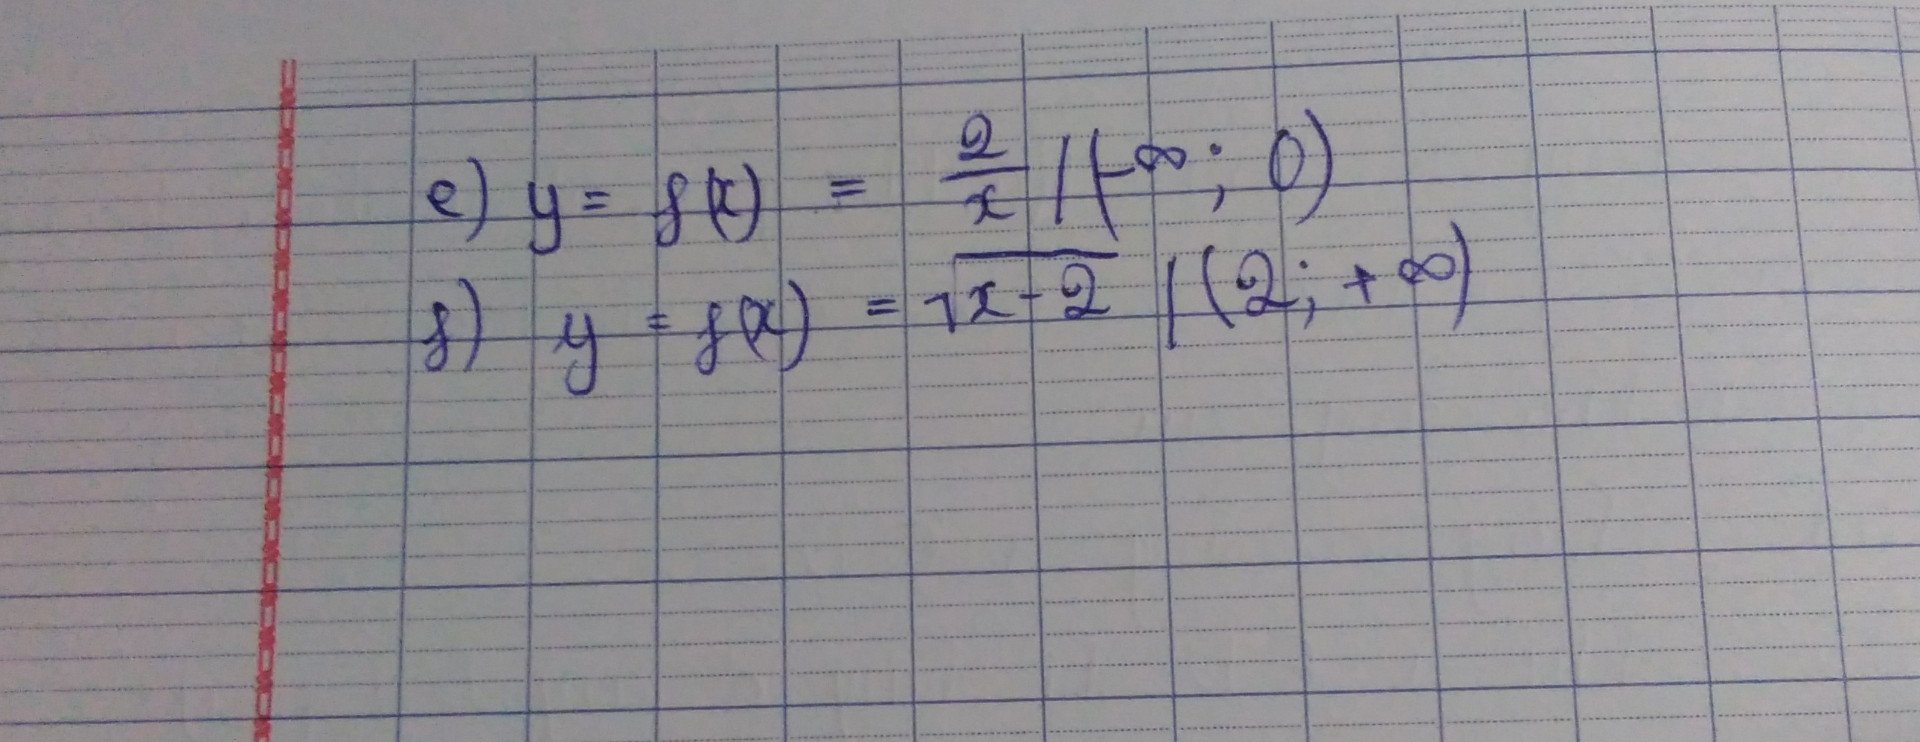 e) y = f(x) = 2/x /(-∞; 0)
f) y = f(x) = √x-2 /(2; +∞)